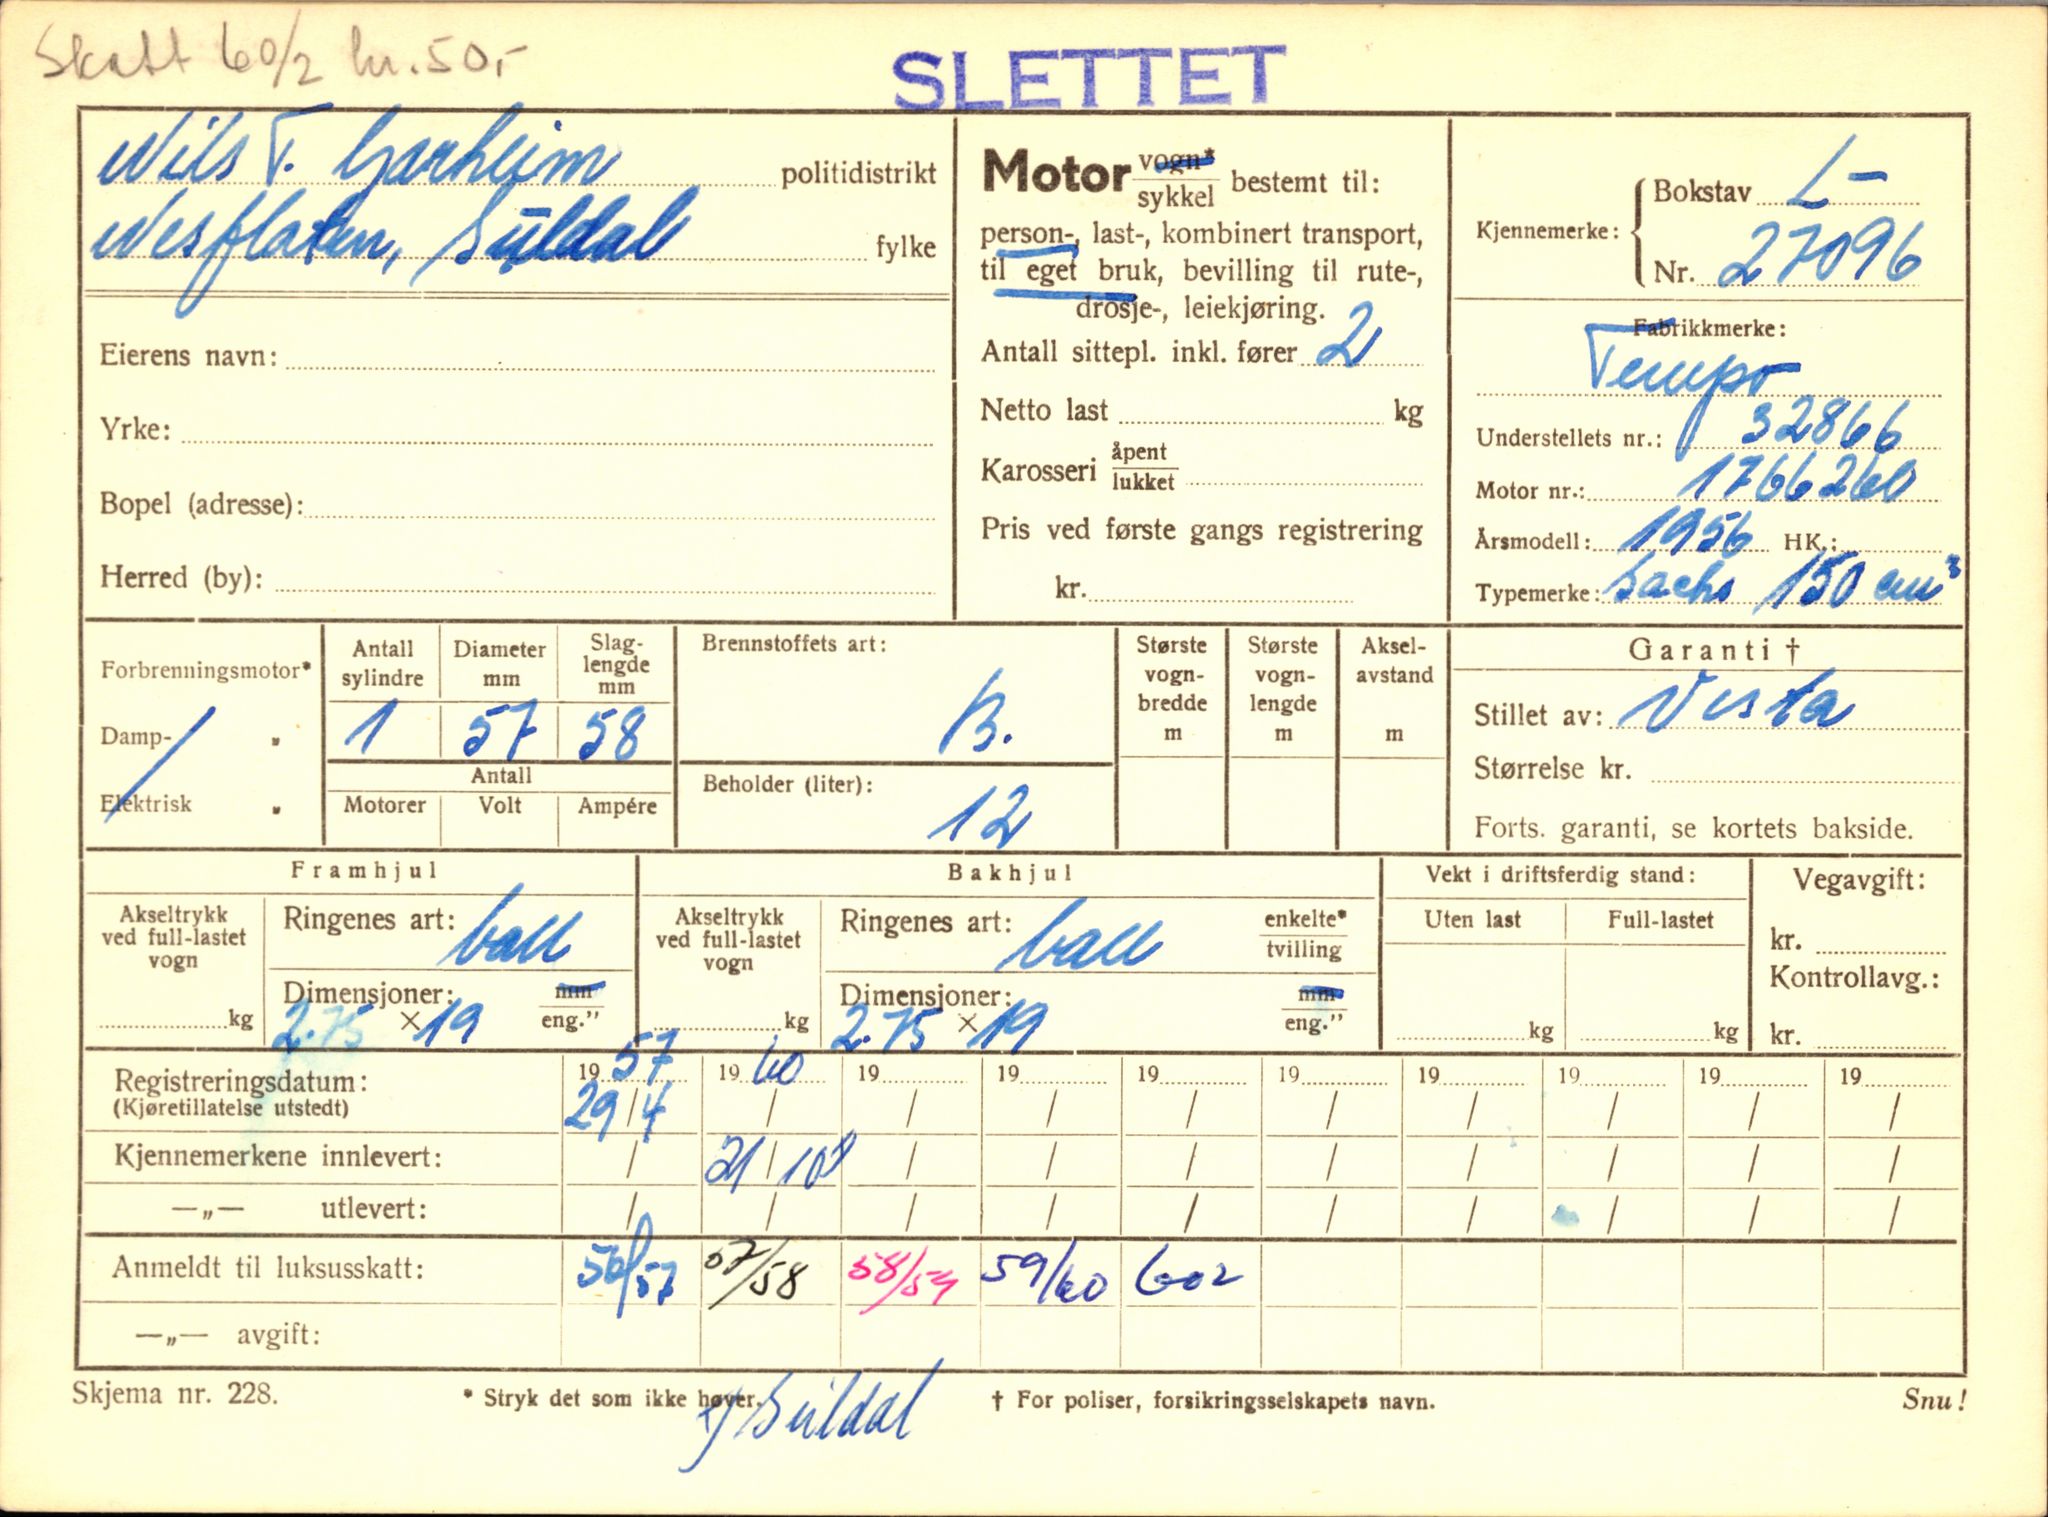 Skatt 60/2 kr. 50,-
SLETTET
Nils T. Garheim politidistrikt
Nesflaten, Suldal fylke
Eierens navn:
Yrke:
Bopel (adresse):
Herred (by):
Motor vogn* / sykkel bestemt til:
person-, last-, kombinert transport,
til eget bruk, bevilling til rute-,
drosje-, leiekjøring.
Antall sittepl. inkl. fører 2
Netto last kg
Karosseri åpent / lukket
Pris ved første gangs registrering
kr.
Kjennemerke: Bokstav L-
Nr. 27096
Fabrikkmerke:
Tempo
Understellets nr.: 32866
Motor nr.: 1766260
Årsmodell: 1956 HK.:
Typemerke: Sachs 150 cm³
Forbrenningsmotor*
Damp- „
Elektrisk „
Antall sylindre 1
Diameter mm 57
Slag-lengde mm 58
Antall
Motorer Volt Ampére
Brennstoffets art: B.
Beholder (liter): 12
Største vogn-bredde m
Største vogn-lengde m
Aksel-avstand m
Garanti †
Stillet av: Vesta
Størrelse kr.
Forts. garanti, se kortets bakside.
Framhjul
Akseltrykk ved full-lastet vogn kg
Ringenes art: ball
Dimensjoner: mm
2.75 × 19 eng.”
Bakhjul
Akseltrykk ved full-lastet vogn kg
Ringenes art: ball enkelte* / tvilling
Dimensjoner: mm
2.75 × 19 eng.”
Vekt i driftsferdig stand:
Uten last Full-lastet
kg kg
Vegavgift:
kr.
Kontrollavg.:
kr.
Registreringsdatum: 1957 1960 19 19 19 19 19 19 19 19
(Kjøretillatelse utstedt) 29/4 / / / / / / / / /
Kjennemerkene innlevert: / 21/10 / / / / / / / /
—„— utlevert: / / / / / / / / / /
Anmeldt til luksusskatt: 56/57 57/58 58/59 59/60 602
—„— avgift:
Skjema nr. 228. * Stryk det som ikke høver. † For poliser, forsikringsselskapets navn. Snu!
Suldal